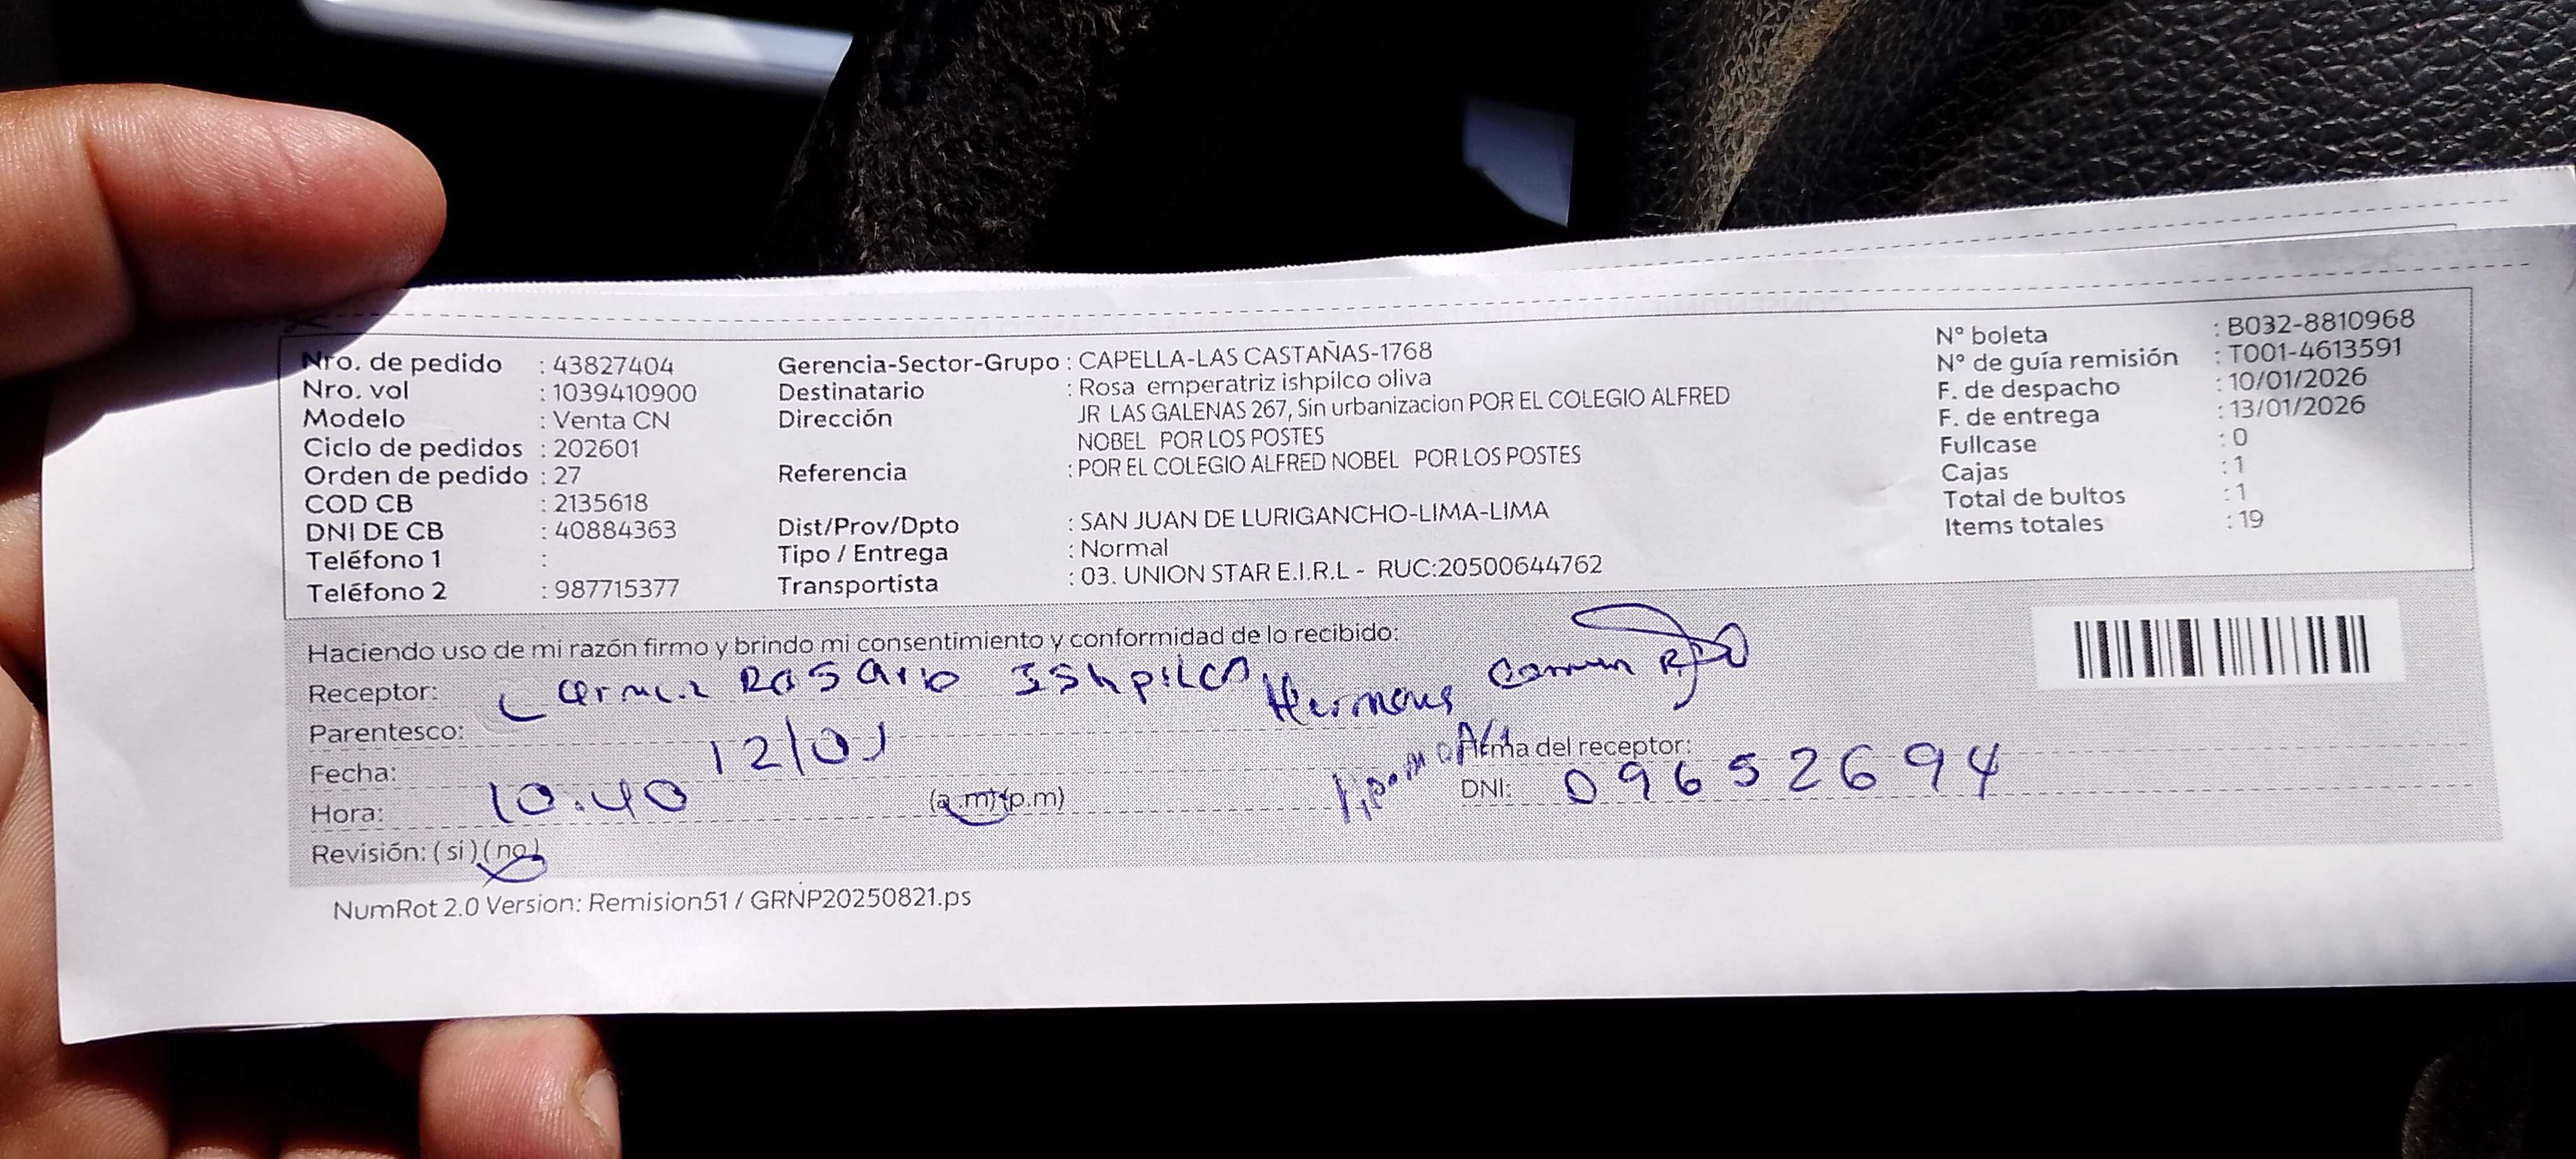 Nro. de pedido : 43827404
Nro. vol : 1039410900
Modelo : Venta CN
Ciclo de pedidos : 202601
Orden de pedido : 27
COD CB : 2135618
DNI DE CB : 40884363
Teléfono 1 :
Teléfono 2 : 987715377
Gerencia-Sector-Grupo : CAPELLA-LAS CASTAÑAS-1768
Destinatario : Rosa emperatriz ishpilco oliva
Dirección JR LAS GALENAS 267, Sin urbanizacion POR EL COLEGIO ALFRED
NOBEL POR LOS POSTES
Referencia : POR EL COLEGIO ALFRED NOBEL POR LOS POSTES
Dist/Prov/Dpto : SAN JUAN DE LURIGANCHO-LIMA-LIMA
Tipo / Entrega : Normal
Transportista : 03. UNION STAR E.I.R.L - RUC:20500644762
N° boleta : B032-8810968
N° de guía remisión : T001-4613591
F. de despacho : 10/01/2026
F. de entrega : 13/01/2026
Fullcase : 0
Cajas : 1
Total de bultos : 1
Items totales : 19
Haciendo uso de mi razón firmo y brindo mi consentimiento y conformidad de lo recibido:
Receptor: Rosario Ishpilco
Parentesco:
Fecha: 12/01
Firma del receptor:
Hora: 10:40 (a.m)(p.m)
DNI: 09652694
Revisión: (si) (no)
NumRot 2.0 Version: Remision51 / GRNP20250821.ps